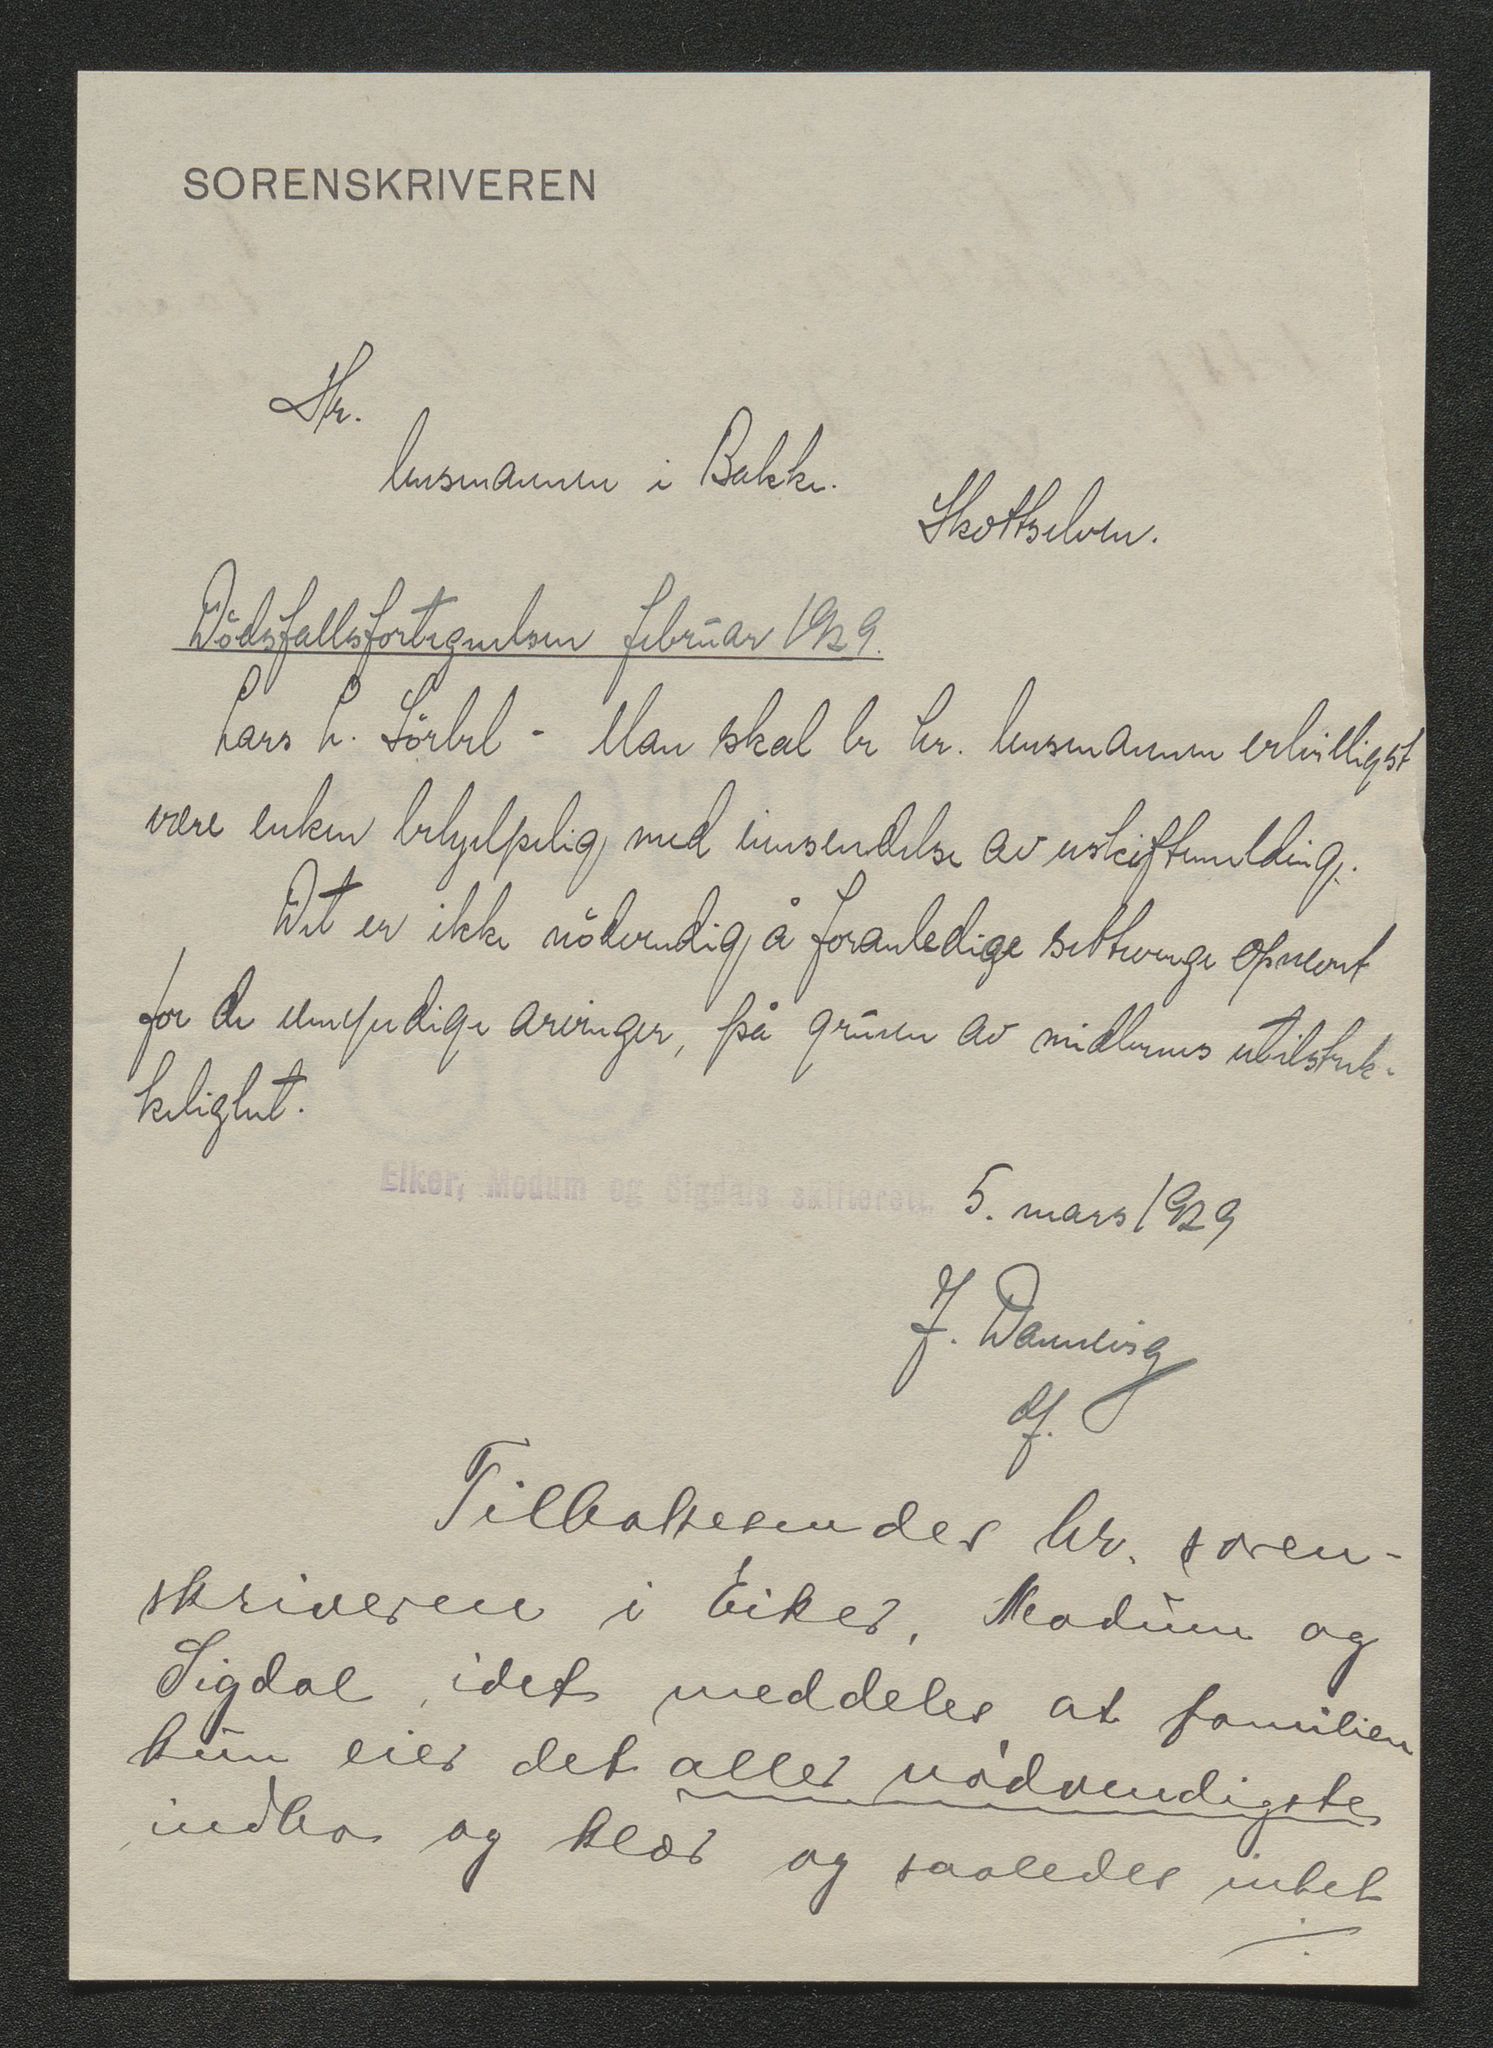 SORENSKRIVEREN
Hr.
lensmannen i Bakke.
Skotselven.
Dödsfallsfortegnelsen februar 1929.
Lars L. Sörbel - Man skal be hr. lensmannen erbödigst
være enken behjelpelig med innsendelse av uskiftemelding.
Det er ikke nödvendig å foranledige setteverge opnevnt
for de umyndige arvinger, på grunn av midlenes utilstrek-
kelighet.
Eiker, Modum og Sigdals skifterett. 5. mars 1929
J. Danneisg
df.
Tilbakesendes hr. soren-
skriveren i Eiker, Modum og
Sigdal, idet meddeles at familien
kun eier det aller nödvendigste
indbo og klær og saaledes intet
./.